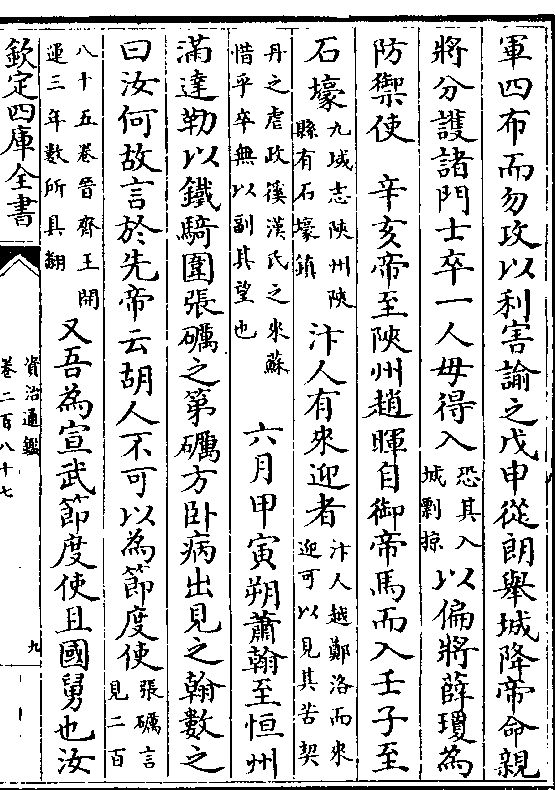 軍四布而勿攻以利害諭之戊申從朗舉城降帝命親
將分護諸門士卒一人毋得入恐其入城剽掠以偏將薛瓊為
防禦使　辛亥帝至陜州趙暉自御帝馬而入壬子至
石壕九域志陜州陜縣有石壕鎮汴人有來迎者汴人越鄭洛而來迎可以見其苦契
丹之虐政徯漢氏之來蘇惜乎卒無以副其望也　六月甲寅朔蕭翰至恒州
滿達勒以鐵騎圍張礪之第礪方卧病出見之翰數之
曰汝何故言於先帝云胡人不可以為節度使張礪言見二百
八十五卷晉齊王開運三年數所具翻又吾為宣武節度使且國舅也汝
欽定四庫全書
資治通鑑
卷二百八十七
九